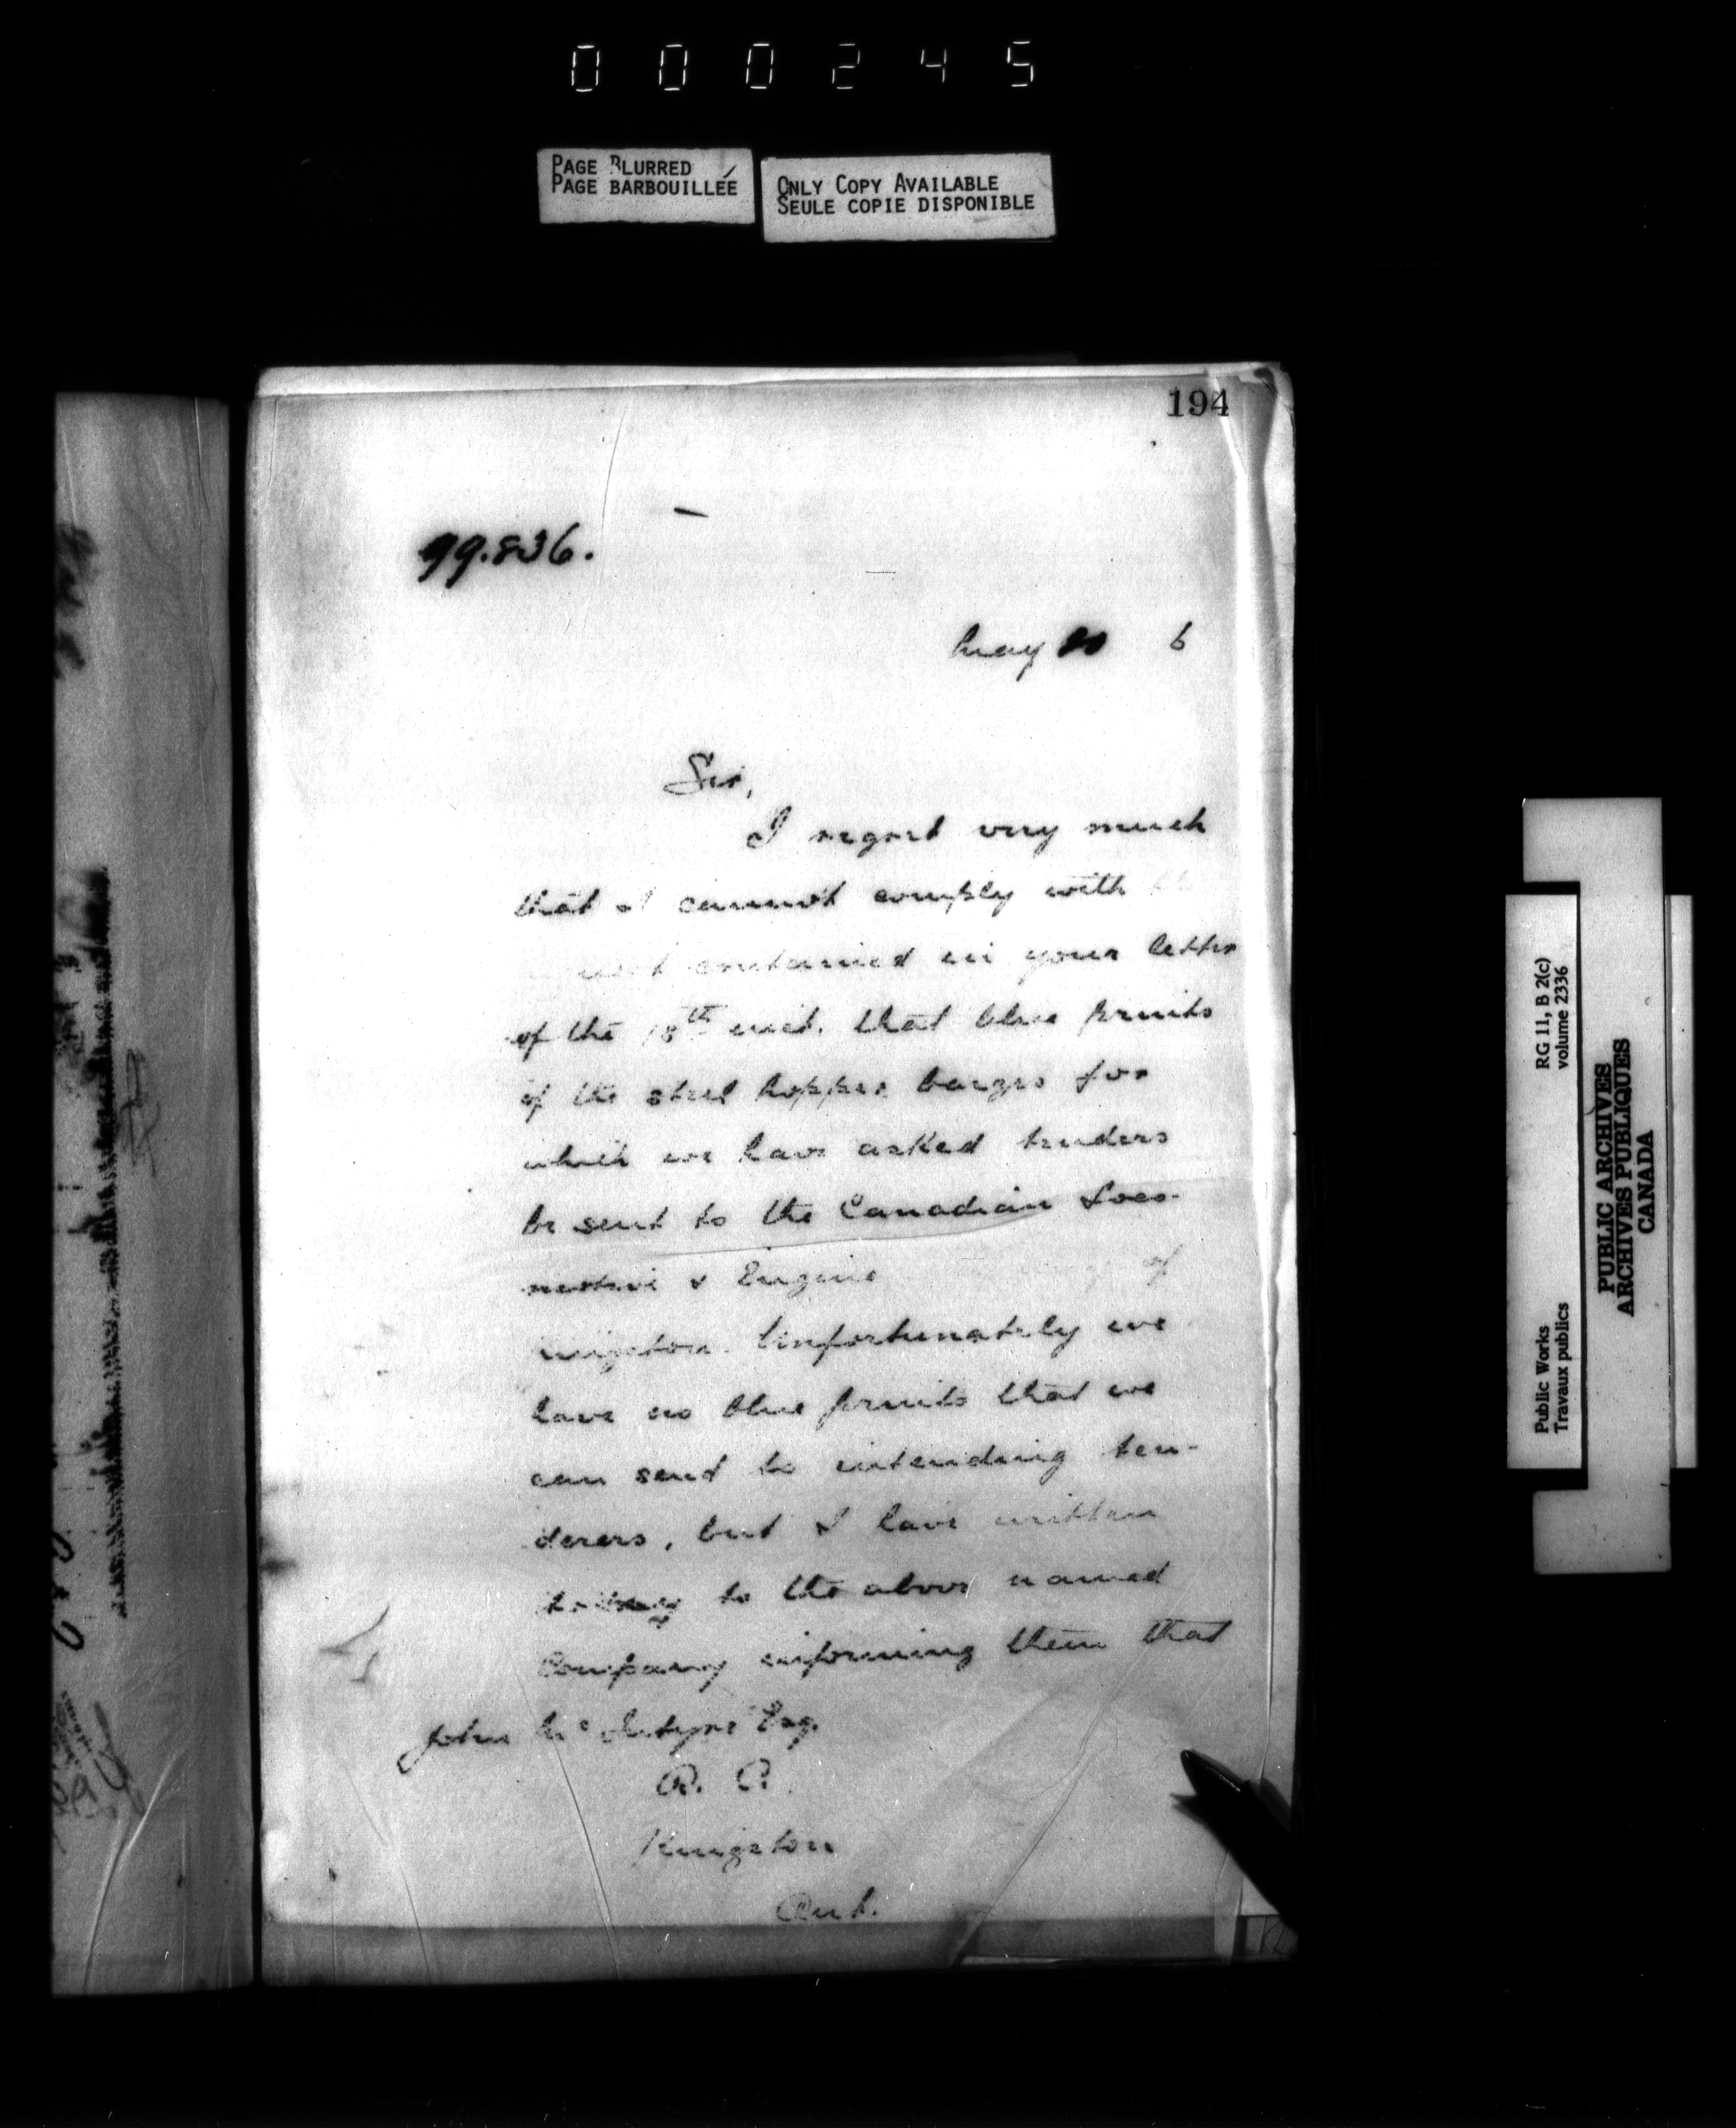 000245
PAGE BLURRED
PAGE BARBOUILLÉE
ONLY COPY AVAILABLE
SEULE COPIE DISPONIBLE
194
99.836.
May 6
Sir,
I regret very much
that I cannot comply with
contained in your letter
of the 18th inst. that blue prints
of the steel hopper barges for
which we have asked tenders
be sent to the Canadian Loco-
motive & Engine of
Kingston. Unfortunately we
have no blue prints that we
can send to intending ten-
derers, but I have written
to-day to the above named
Company informing them that
John McIntyre Esq.
Kingston
Ont.
RG 11, B 2(c)
volume 2336
Public Works
Travaux publics
PUBLIC ARCHIVES
ARCHIVES PUBLIQUES
CANADA